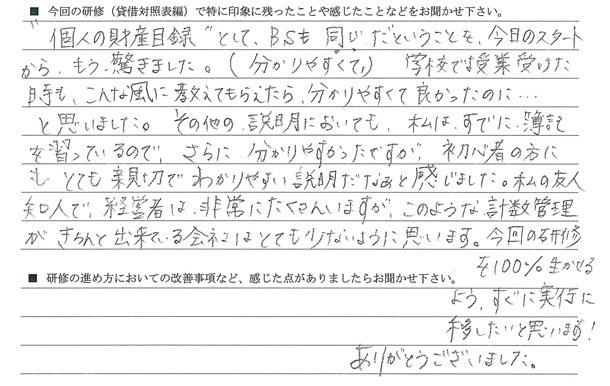 ■ 今回の研修（貸借対照表編）で特に印象に残ったことや感じたことなどをお聞かせ下さい。
"個人の財産目録"として、BSも同じだということを、今日のスタート
から、もう、驚きました。（分かりやすくて。） 学校では授業受けた
時も、こんな風に教えてもらえたら、分かりやすくて良かったのに…
と思いました。その他の、説明においても、私は、すでに、簿記
を習っているので、さらに分かりやすかったですが、初心者の方に
も とても親切でわかりやすい説明だなぁと感じました。私の友人
知人で、経営者は、非常にたくさんいますが、このような計数管理
がきちんと出来ている会社はとても少ないように思います。今回の研修
を100%生かせる
■ 研修の進め方においての改善事項など、感じた点がありましたらお聞かせ下さい。
よう、すぐに実行に
移したいと思います！
ありがとうございました。